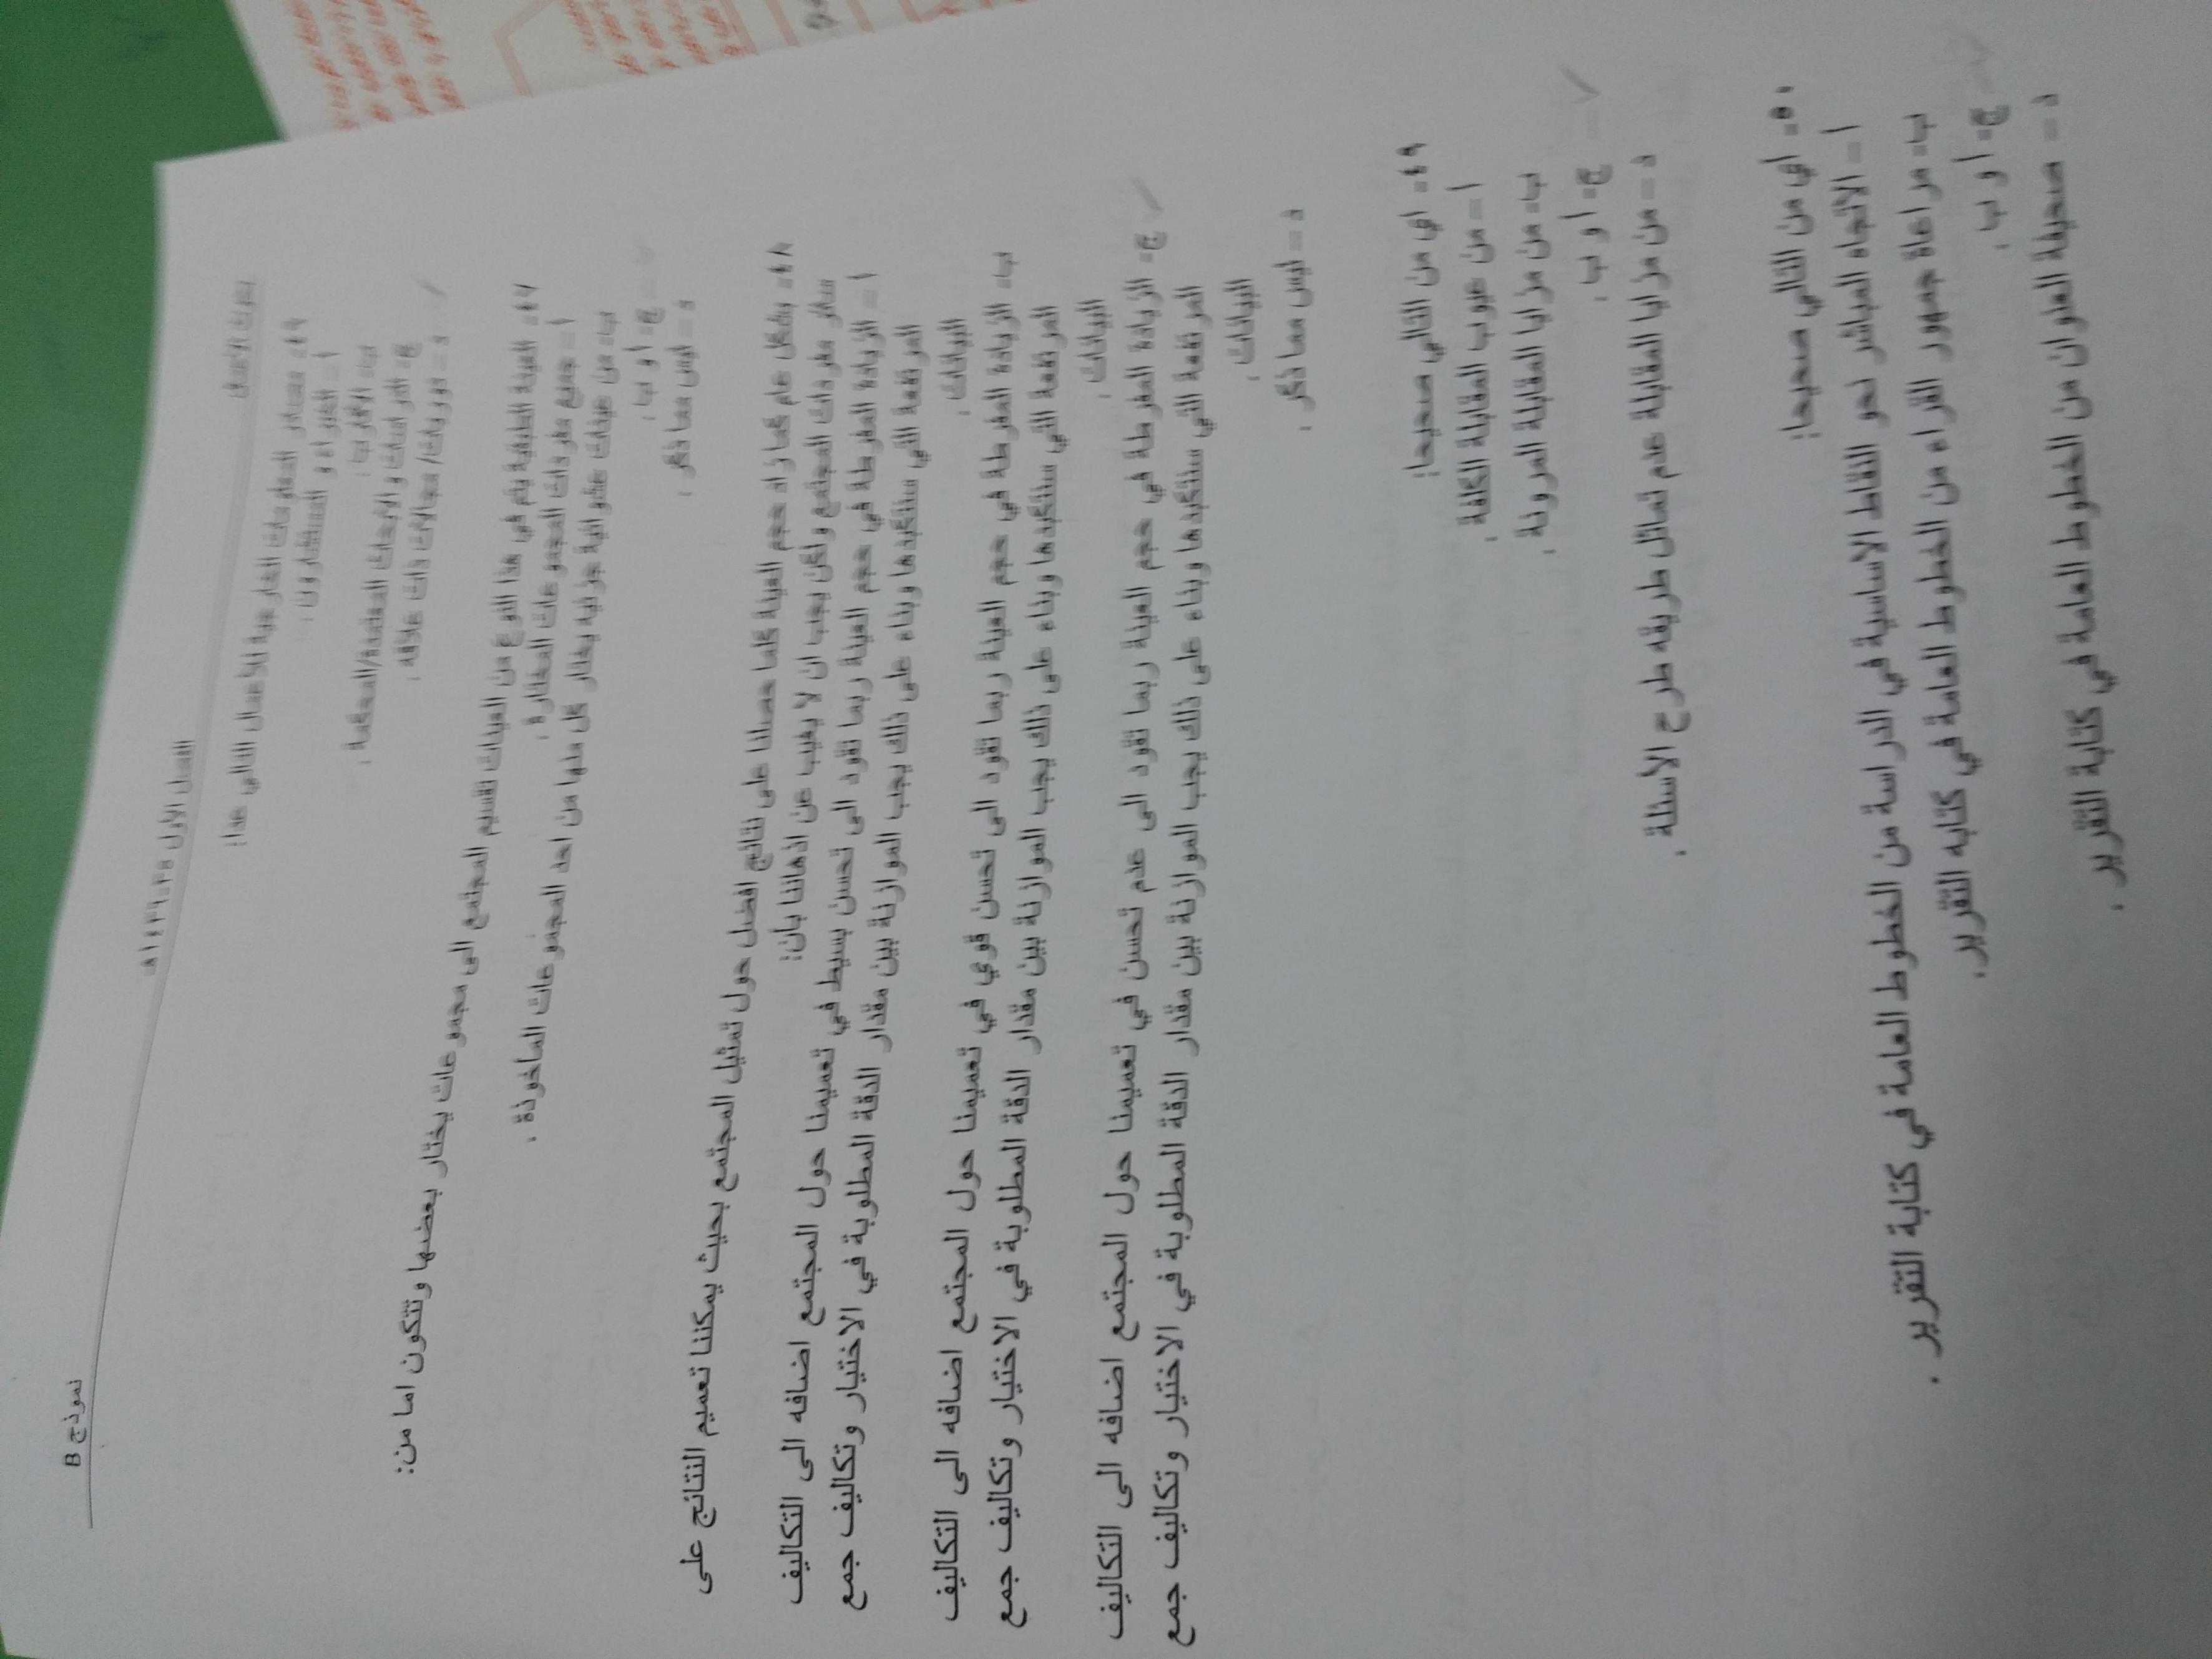 بحوث الأعمال
الفصل الاول ١٤٣٥-١٤٣٦هـ
نموذج B
٤٦- مصادر المعلومات الخارجية للأعمال التالي عدا:
أ – الخبراء و المستشارون.
ب- الأقارب.
ج- الدراسات والابحاث المعتمدة/المحكمة.
د – دوريات/ مجالات ذات علاقة.
٤٧- العينة الطبقية يتم في هذا النوع من العينات تقسيم المجتمع الى مجموعات يختار بعضها وتتكون اما من:
أ – جميع مفردات المجموعات المختارة.
ب- من عينات عشوائية جزئيه يختار كل منها من احد المجموعات الماخوذة.
ج- أ و ب.
د – ليس مما ذكر.
٤٨- بشكل عام كما زاد حجم العينة كلما حصلنا على نتائج افضل حول تمثيل المجتمع بحيث يمكننا تعميم النتائج على
سائر مفردات المجتمع ولكن يجب ان لا يغيب عن اذهاننا بأن:
أ – الزيادة المفرطة في حجم العينة ربما تقود الى تحسن بسيط في تعميمنا حول المجتمع اضافه الى التكاليف
المرتفعة التي سنتكبدها وبناء على ذلك يجب الموازنة بين مقدار الدقة المطلوبة في الاختيار وتكاليف جمع
البيانات.
ب- الزيادة المفرطة في حجم العينة ربما تقود الى تحسن قوي في تعميمنا حول المجتمع اضافه الى التكاليف
المرتفعة التي سنتكبدها وبناء على ذلك يجب الموازنة بين مقدار الدقة المطلوبة في الاختيار وتكاليف جمع
البيانات.
ج- الزيادة المفرطة في حجم العينة ربما تقود الى عدم تحسن في تعميمنا حول المجتمع اضافه الى التكاليف
المرتفعة التي سنتكبدها وبناء على ذلك يجب الموازنة بين مقدار الدقة المطلوبة في الاختيار وتكاليف جمع
البيانات.
د – ليس مما ذكر.
٤٩- اي من التالي صحيحا:
أ – من عيوب المقابلة الكلفة.
ب- من مزايا المقابلة المرونة.
ج- أ و ب.
د – من مزايا المقابلة عدم تماثل طريقه طرح الأسئلة.
٥٠- اي من التالي صحيحا:
أ – الاتجاه المباشر نحو النقاط الاساسية في الدراسة من الخطوط العامة في كتابة التقرير.
ب- مراعاة جمهور القراء من الخطوط العامة في كتابه التقرير.
ج- أ و ب.
د – صحيفة العنوان من الخطوط العامة في كتابة التقرير.